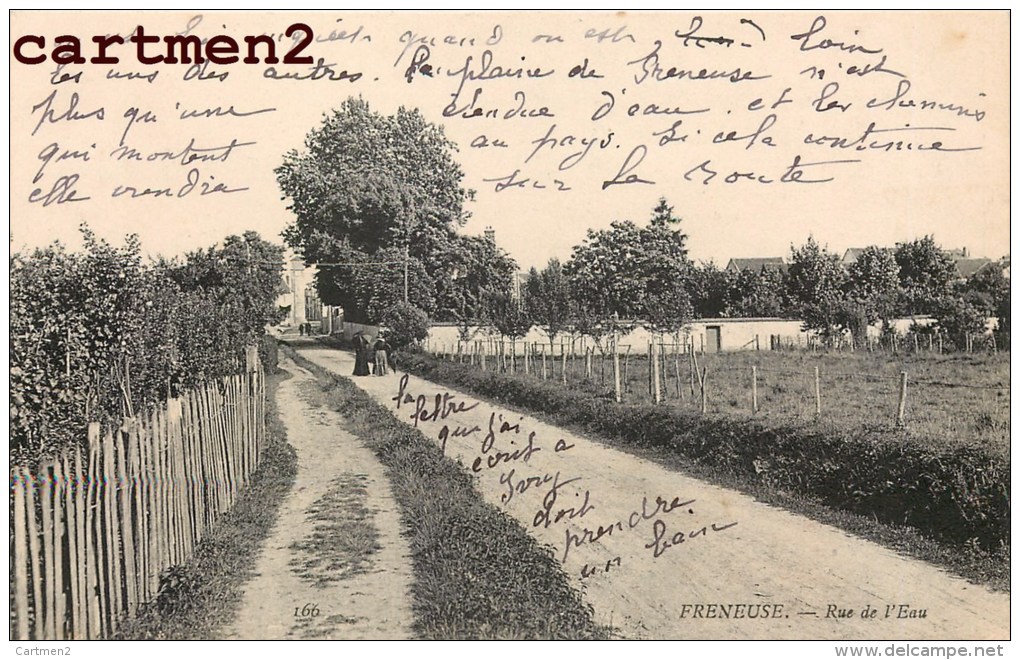 cartmen2
inquiet quand on est loin
les uns des autres. La plaine de Freneuse n'est
plus qu'une étendue d'eau. et les chemins
qui montent au pays. Si cela continue
elle viendra sur la route
la
lettre
que j'ai
écrit a
Ivry
doit
prendre
un bain
166
FRENEUSE. — Rue de l'Eau
Cartmen2
www.delcampe.net